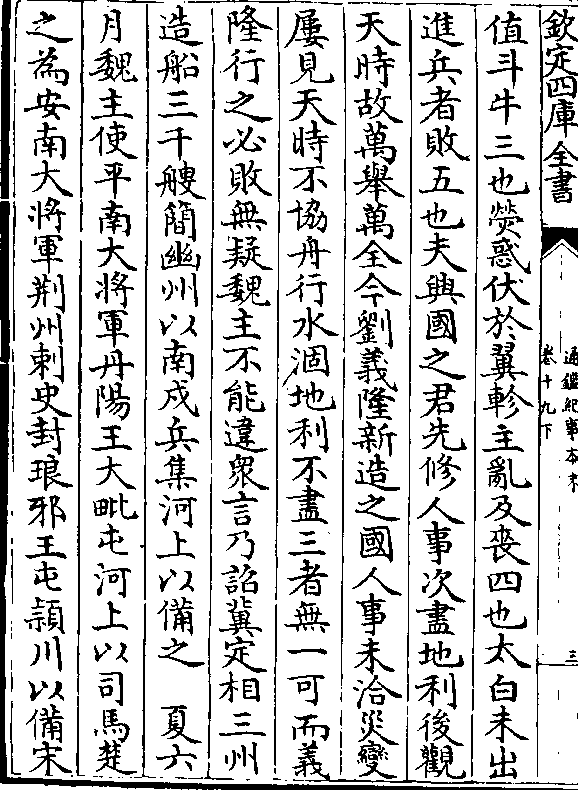 欽定四庫全書
通鑑紀事本末
卷十九下
三
值斗牛三也熒惑伏於翼軫主亂及喪四也太白未出
進兵者敗五也夫興國之君先修人事次盡地利後觀
天時故萬舉萬全今劉義隆新造之國人事未洽災變
屢見天時不協舟行水涸地利不盡三者無一可而義
隆行之必敗無疑魏主不能違衆言乃詔冀定相三州
造船三千艘簡幽州以南戍兵集河上以備之　夏六
月魏主使平南大將軍丹陽王大毗屯河上以司馬楚
之為安南大將軍荆州刺史封琅邪王屯潁川以備宋